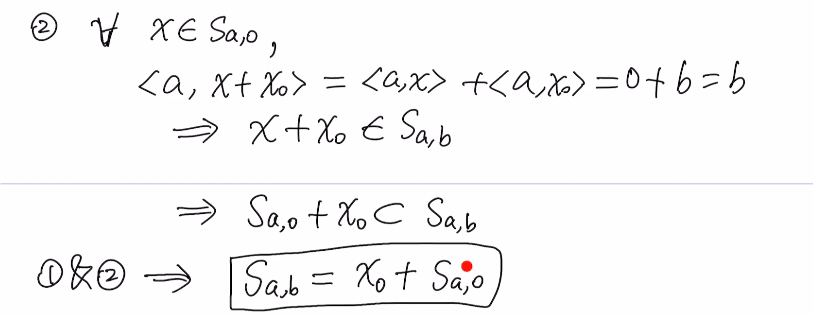 ② ∀ x ∈ Sa,0 ,
<a, x+x₀> = <a,x> + <a,x₀> = 0 + b = b
⇒ x + x₀ ∈ Sa,b
⇒ Sa,0 + x₀ ⊂ Sa,b
① & ② ⇒ Sa,b = x₀ + Sa,0